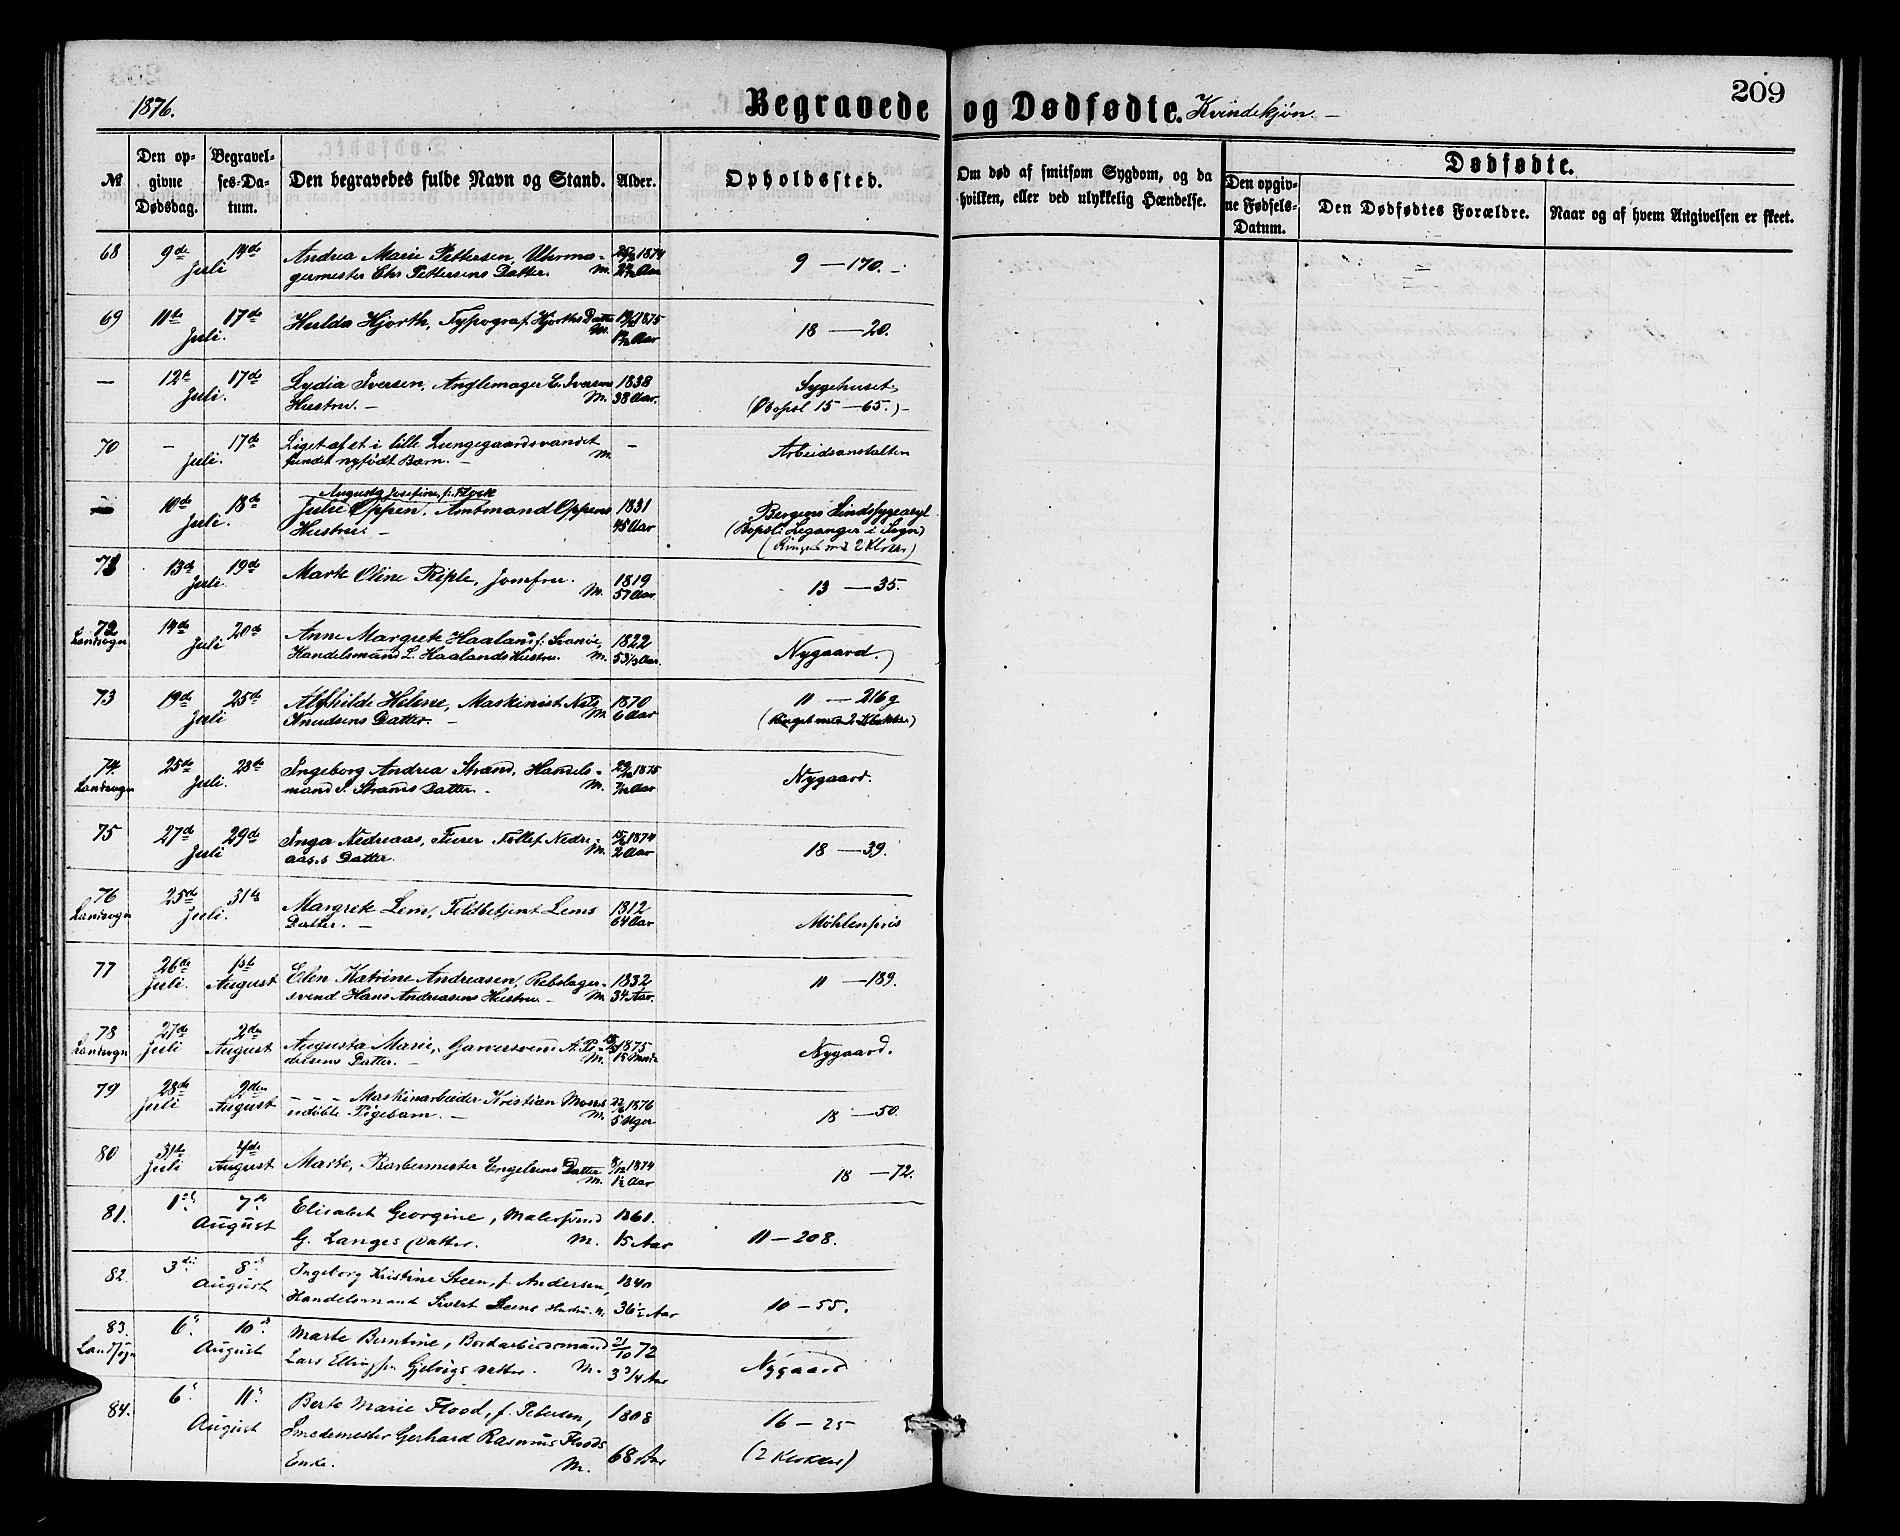 209
1876.
Begravede og Dødfødte. Kvindekjøn. —
№
Den opgivne Dødsdag.
Begravelses-Datum.
Den begravedes fulde Navn og Stand.
Alder.
Opholdssted.
Om død af smitsom Sygdom, og da hvilken, eller ved ulykkelig Hændelse.
Dødfødte.
Den opgivne Fødsels-Datum.
Den Dødfødtes Forældre.
Naar og af hvem Angivelsen er skeet.
68 9de 14de Juli Andrea Marie Pettersen, Uhrma-
germester Chr Pettersens Datter. M. 1874 9 — 170. —
69 11te 17de Juli. Hulda Hjorth, Typograf Hjorths Datter M. 1875 18 — 20.
— 12te 17de Juli. Lydia Iversen, Anglemager C. Iversens 1838 Sygehuset
Hustru. — M. 38 Aar. (Bopæl 15 — 65.) —
70 — 17de Juli. Liget af et i lille Lungegaardsvandet — Arbeidsanstalten
fundet nyfødt Barn. — M.
Augusta Josefine, f.
10de 18de Juli. Julie Oppen, Amtmand Oppens 1831 Bergens Sindssygeasyl
Hustru. — 45 Aar (Bopæl: Leganger i Sogn)
(Ringet med 2 Klokker)
71 13de 19de Juli. Marte Oline Riple, Jomfru. M. 1819 57 Aar 13 — 35.
72 Landsogn 14de 20de Juli Anne Margrete Haaland f. Svanøe, 1822 Nygaard.
Handelsmand L. Haalands Hustru. M. 53½ Aar
73 19de 25de Juli Alfhilde Helene, Maskinist Nils 1870 11 — 216g
Knudsens Datter. — M. 6 Aar (Ringet med 2 Klokker)
74. Landsogn 25de 28de Juli. Ingeborg Andrea Strand, Handels- 1875 Nygaard.
mand S. Strands Datter. — M. Aar
75 27de 29de Juli Inga Nedreaas, Fører Tollef Nedre- 1874 18 — 39.
aas.s Datter. M. 2 Aar
76 Landsogn 25de 31te Juli. Margrete Lem, Feldbetjent Lems 1812 Møhlenpris
Datter. — 64 Aar
77 26de Juli. 1ste August Elen Katrine Andreasen, Rebslager- 1832 11 — 189.
svend Hans Andreasens Hustru — M. 34 Aar.
78 Landsogn 27de Juli 2den August Augusta Marie, Garversvend A. Pe- 1875 Nygaard.
dersens Datter. — M.
79 28de Juli 2den August — — — Maskinarbeider Kristian 1876 18 — 50.
udøbte Pigebarn. — M. 5 Uger
80 31te Juli 4de August Marte, Barbermester Engelsens Datter M. 8/12 1874 1½ Aar 18 — 72.
81. 1ste 7de August Elisabet Georgine, Malersvend 1861.
G. Langes Datter. M. 15 Aar 11 — 208.
82. 3die 8de August Ingeborg Kristine Steen, f. Andersen, 1840
Handelsmand Sivert Steens Hustru. M. 36½ Aar 10 — 55.
83. Landsogn 6te 10de August Marte Berntine, 21/10 72
Lars Ellingsen Gjelvigs Datter. M. 3¾ Aar Nygaard
84. 6te 11te August Berte Marie Flood, f. Petersen, 1808 16 — 25
Smedemester Gerhard Rasmus Floods
Enke. M. 68 Aar (2 Klokker)